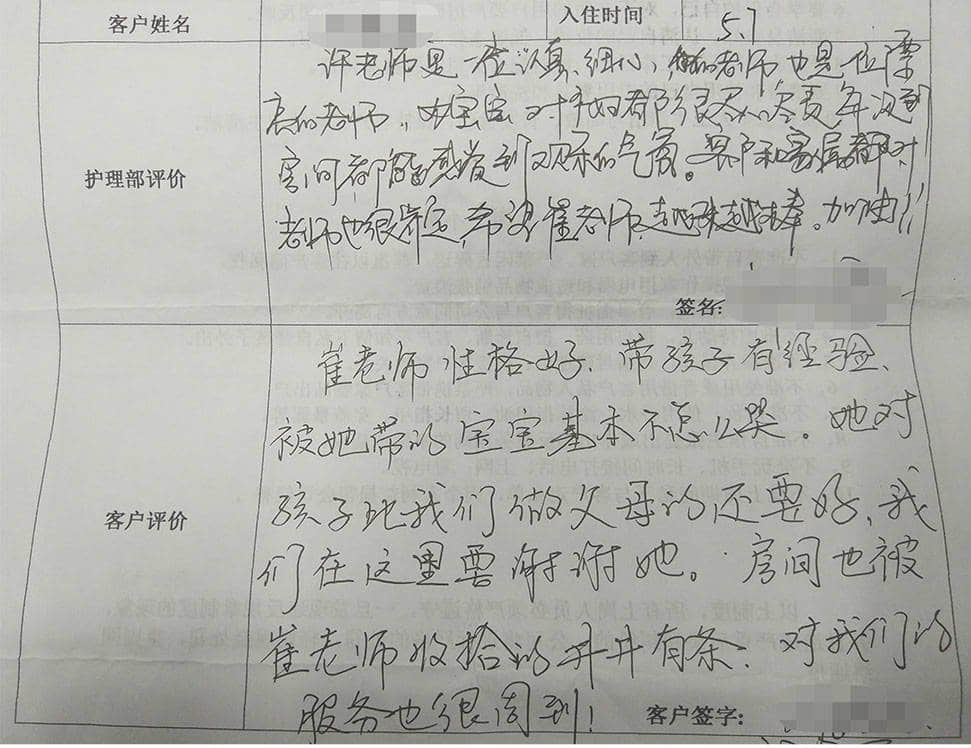 客户姓名 入住时间 5.7
护理部评价
老师是一位认真、细心、的老师,也是位漂
亮的老师,对宝宝对产妇都很尽心尽责,每次到
房间都能感受到的气氛。客户和家属都对
老师也很肯定,希望崔老师越来越棒。加油!!
签名:
客户评价
崔老师性格好,带孩子有经验,
被她带的宝宝基本不怎么哭。她对
孩子比我们做父母的还要好,我
们在这里要谢谢她。房间也被
崔老师收拾的井井有条。对我们的
服务也很周到!
客户签字: